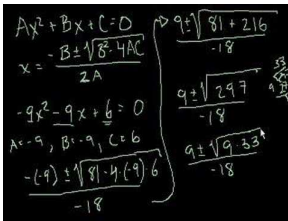 Ax²+Bx+C=0
x = (-B±√(B²-4AC))/2A
-9x²-9x+6=0
A=-9, B=-9, C=6
(-(-9)±√(81-4·(-9)·6))/-18
(9±√(81+216))/-18
(9±√297)/-18
(9±√(9·33))/-18
33